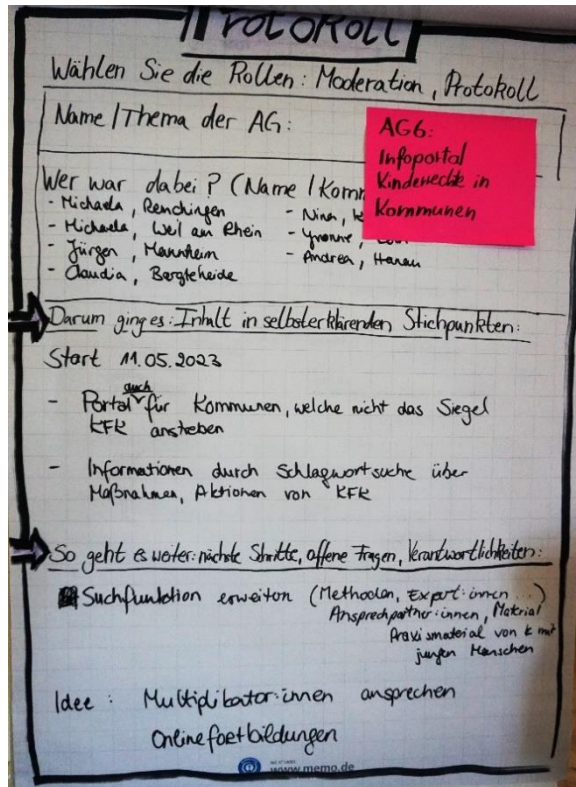 Protokoll
Wählen Sie die Rollen: Moderation, Protokoll
Name / Thema der AG:
AG6:
Infoportal
Kinderrechte in
Kommunen
Wer war dabei? (Name / Komm
- Michaela, Renchingen
- Michaela, Weil am Rhein
- Jürgen, Mannheim
- Claudia, Bargteheide
- Nina,
- Yvonne,
- Andrea, Hanau
Darum ging es: Inhalt in selbsterklärenden Stichpunkten:
Start 11.05.2023
- Portal auch für Kommunen, welche nicht das Siegel
KFK anstreben
- Informationen durch Schlagwortsuche über
Maßnahmen, Aktionen von KFK
So geht es weiter: nächste Schritte, offene Fragen, Verantwortlichkeiten:
Suchfunktion erweitern (Methoden, Expert:innen ...)
Ansprechpartner:innen, Material
Praxismaterial von K mit
jungen Menschen
Idee: Multiplikator:innen ansprechen
Onlinefortbildungen
www.memo.de